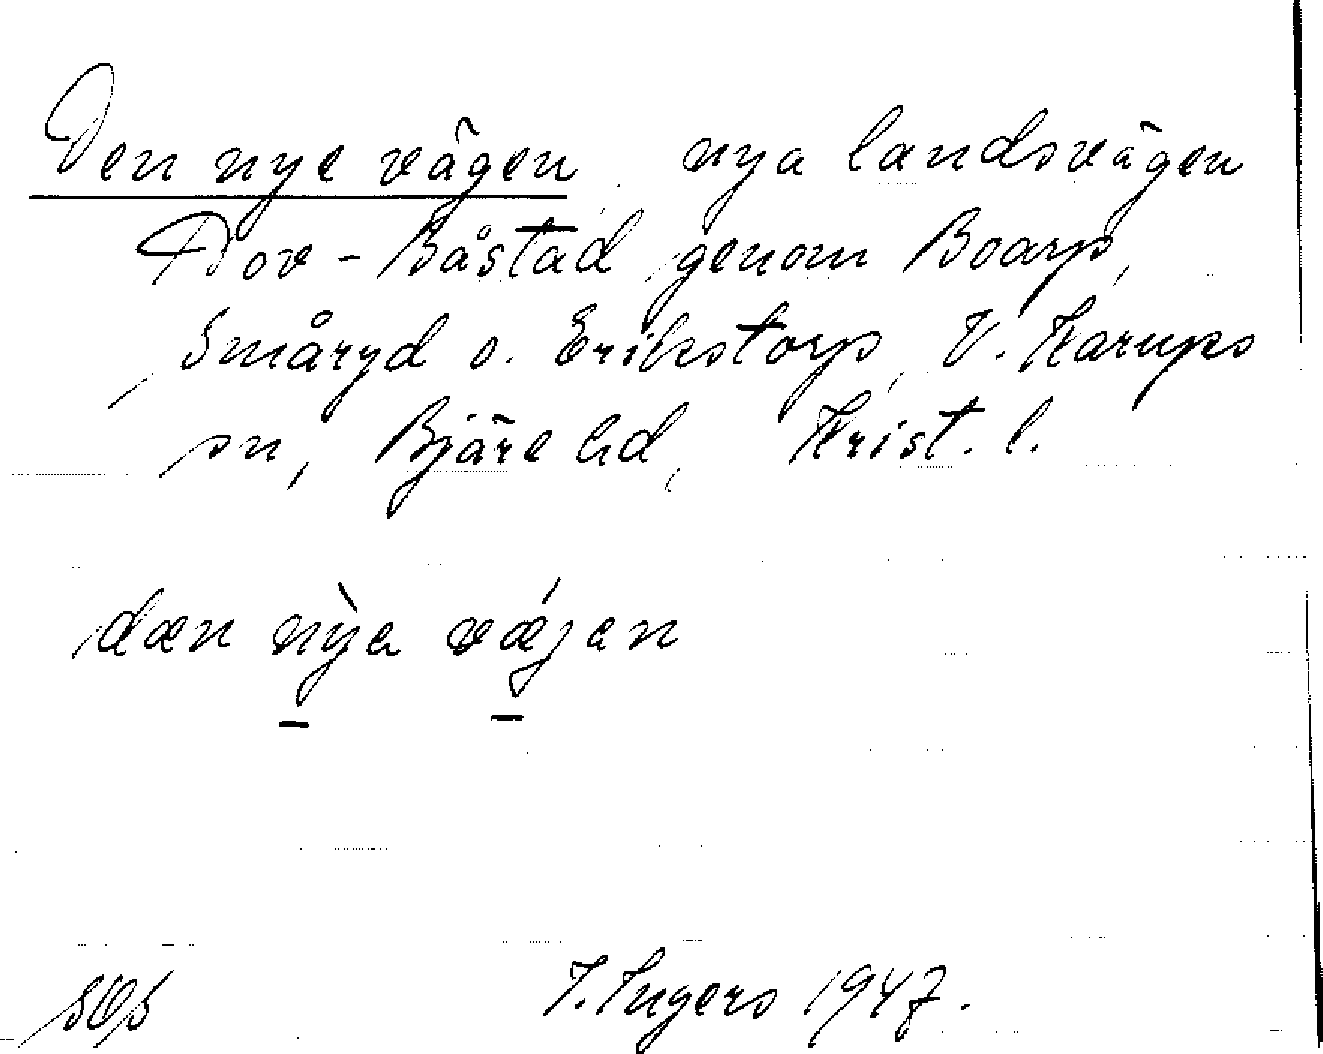 Den nye vägen nya landsvägen
Dov - Båstad genom Boarp,
Småryd o. Erikstorp, V. Karups
sn, Bjäre hd, Krist. l.
dæn nỳa vǽjan
I. Ingers 1947.